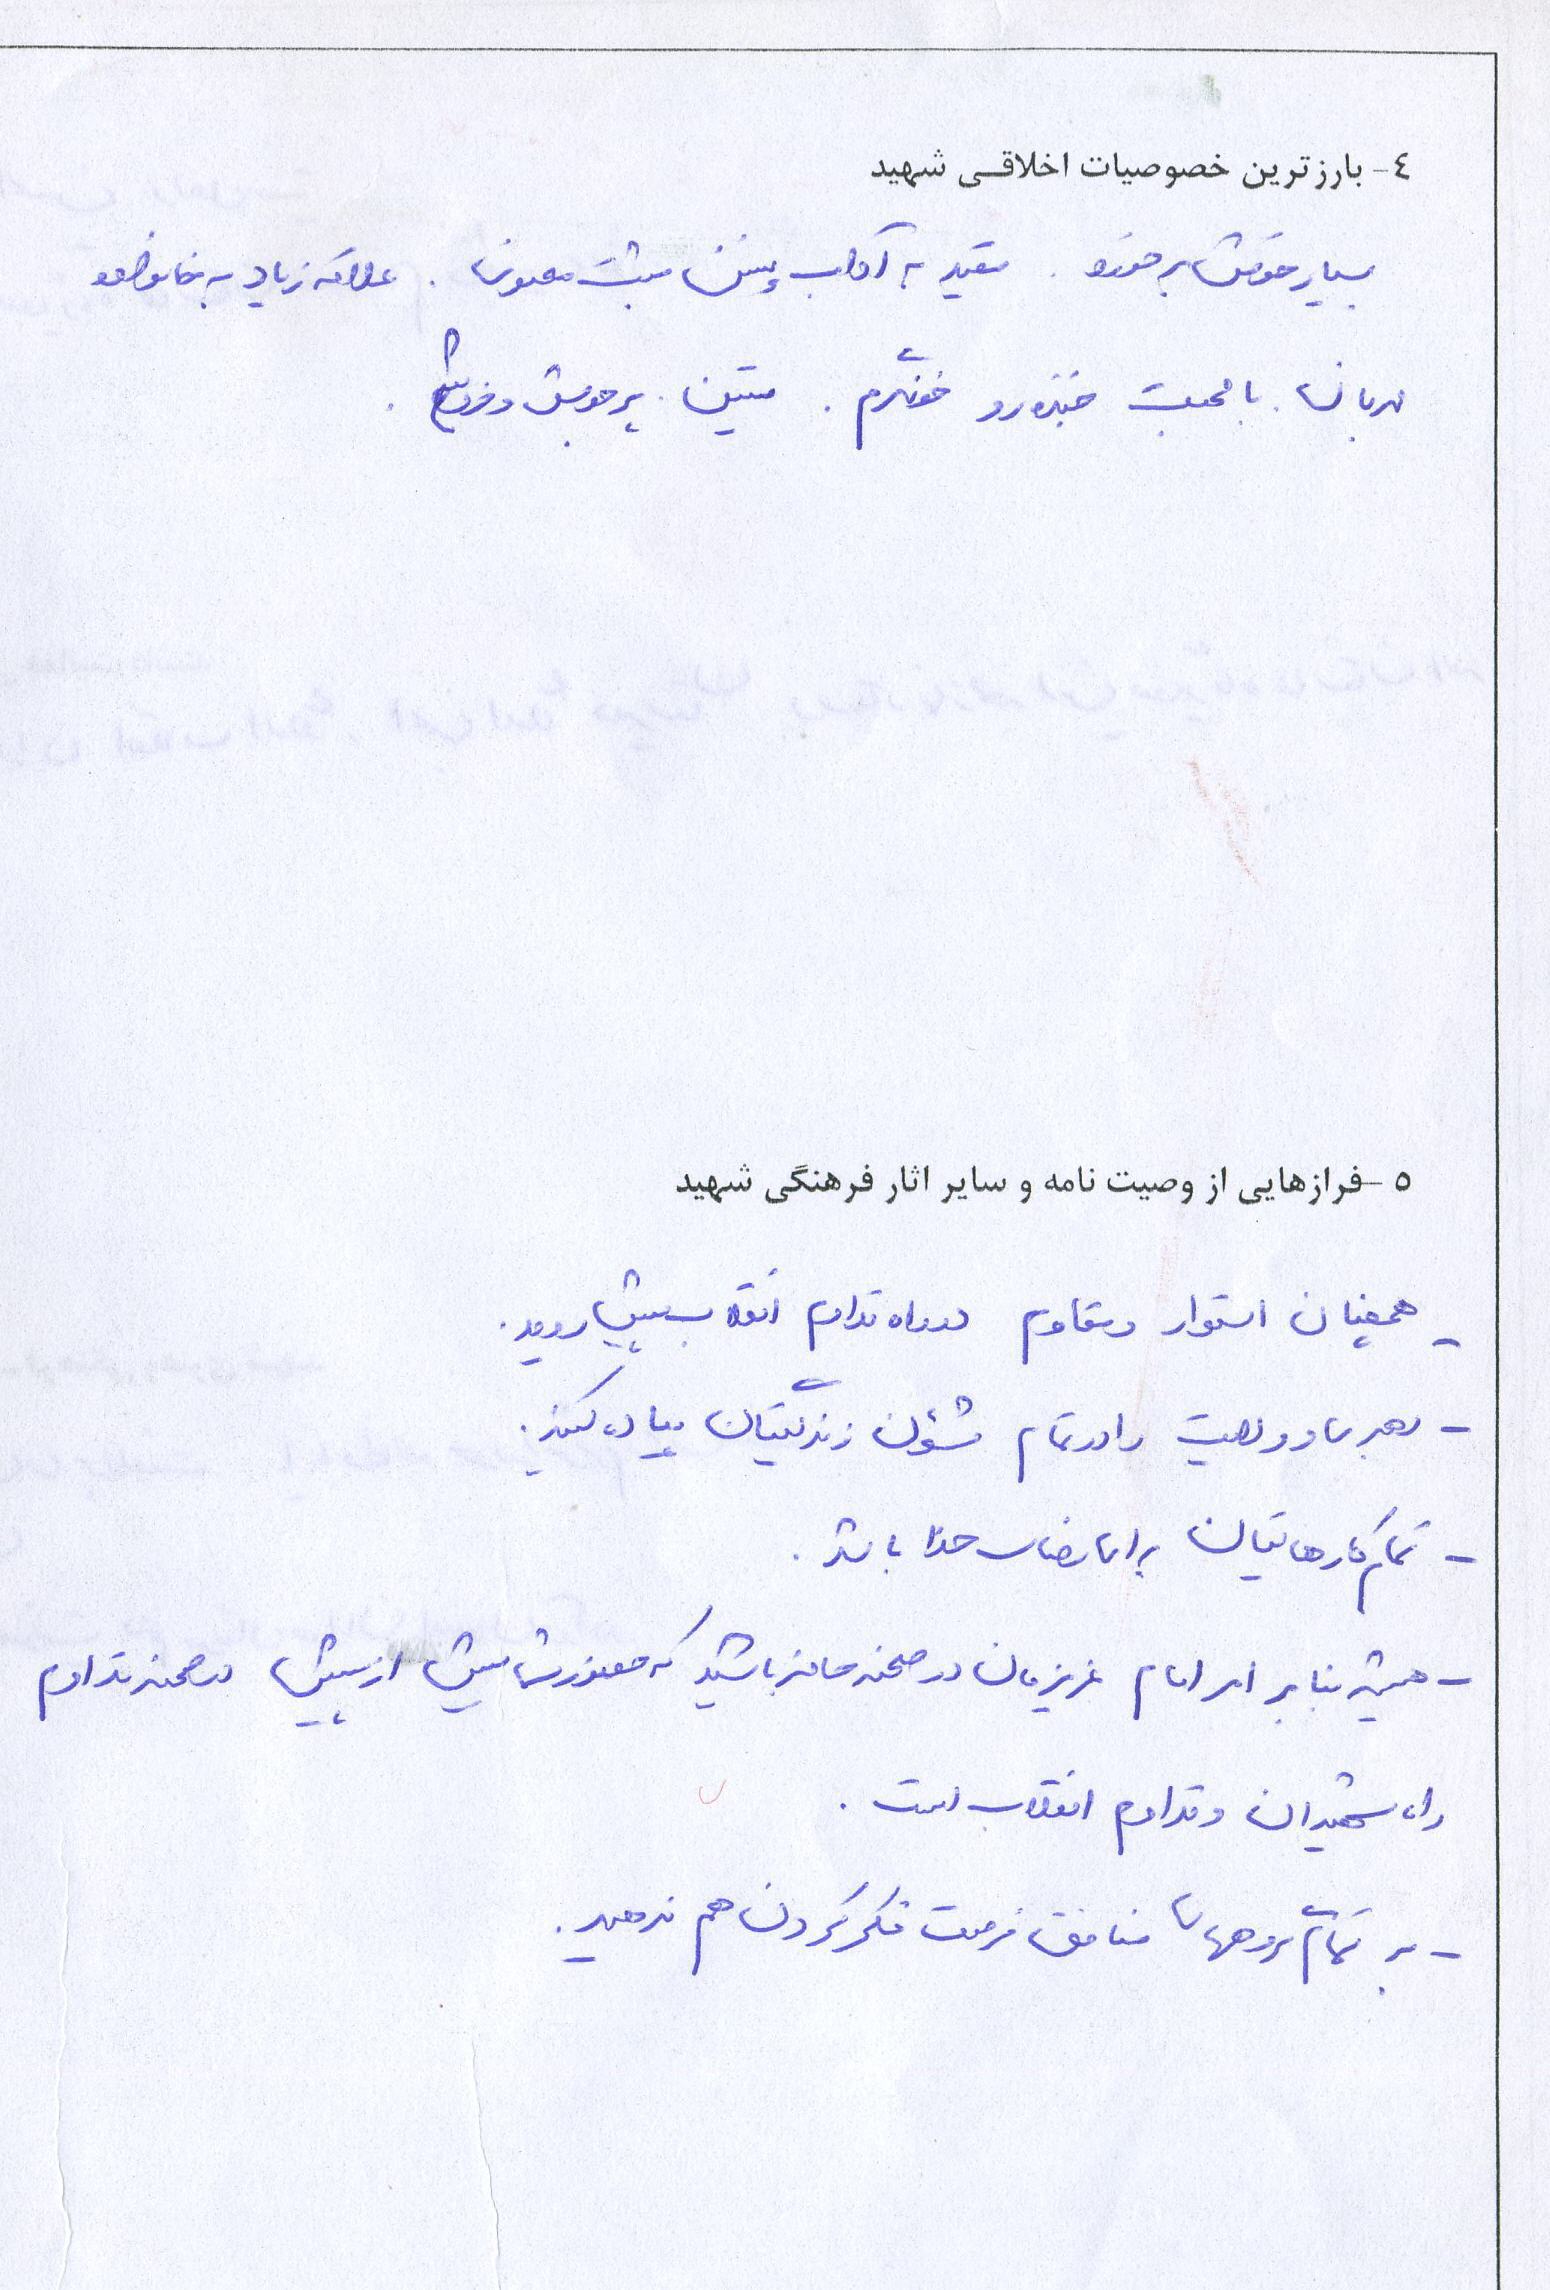 ٤- بارزترین خصوصیات اخلاقی شهید
بسیار خوش برخورد . مقید به آداب و سنن مثبت معنوی . علاقه زیاد به خانواده
مهربان . با محبت خنده رو خونگرم . متین . پر جوش و خروش .
٥- فرازهایی از وصیت نامه و سایر اثار فرهنگی شهید
- همچنان استوار و مقاوم در راه تداوم انقلاب پیش روید .
- رهبری و ولایت را در تمام شئون زندگیتان پیاده کنید .
- تمام کارهایتان برای رضای خدا باشد .
- همیشه بنا بر امر امام عزیزمان در صحنه حاضر باشید که حضور شما بیش از پیش در صحنه تداوم
راه شهیدان و تداوم انقلاب است .
- به تمام گروههای منافق فرصت فکر کردن هم ندهید .